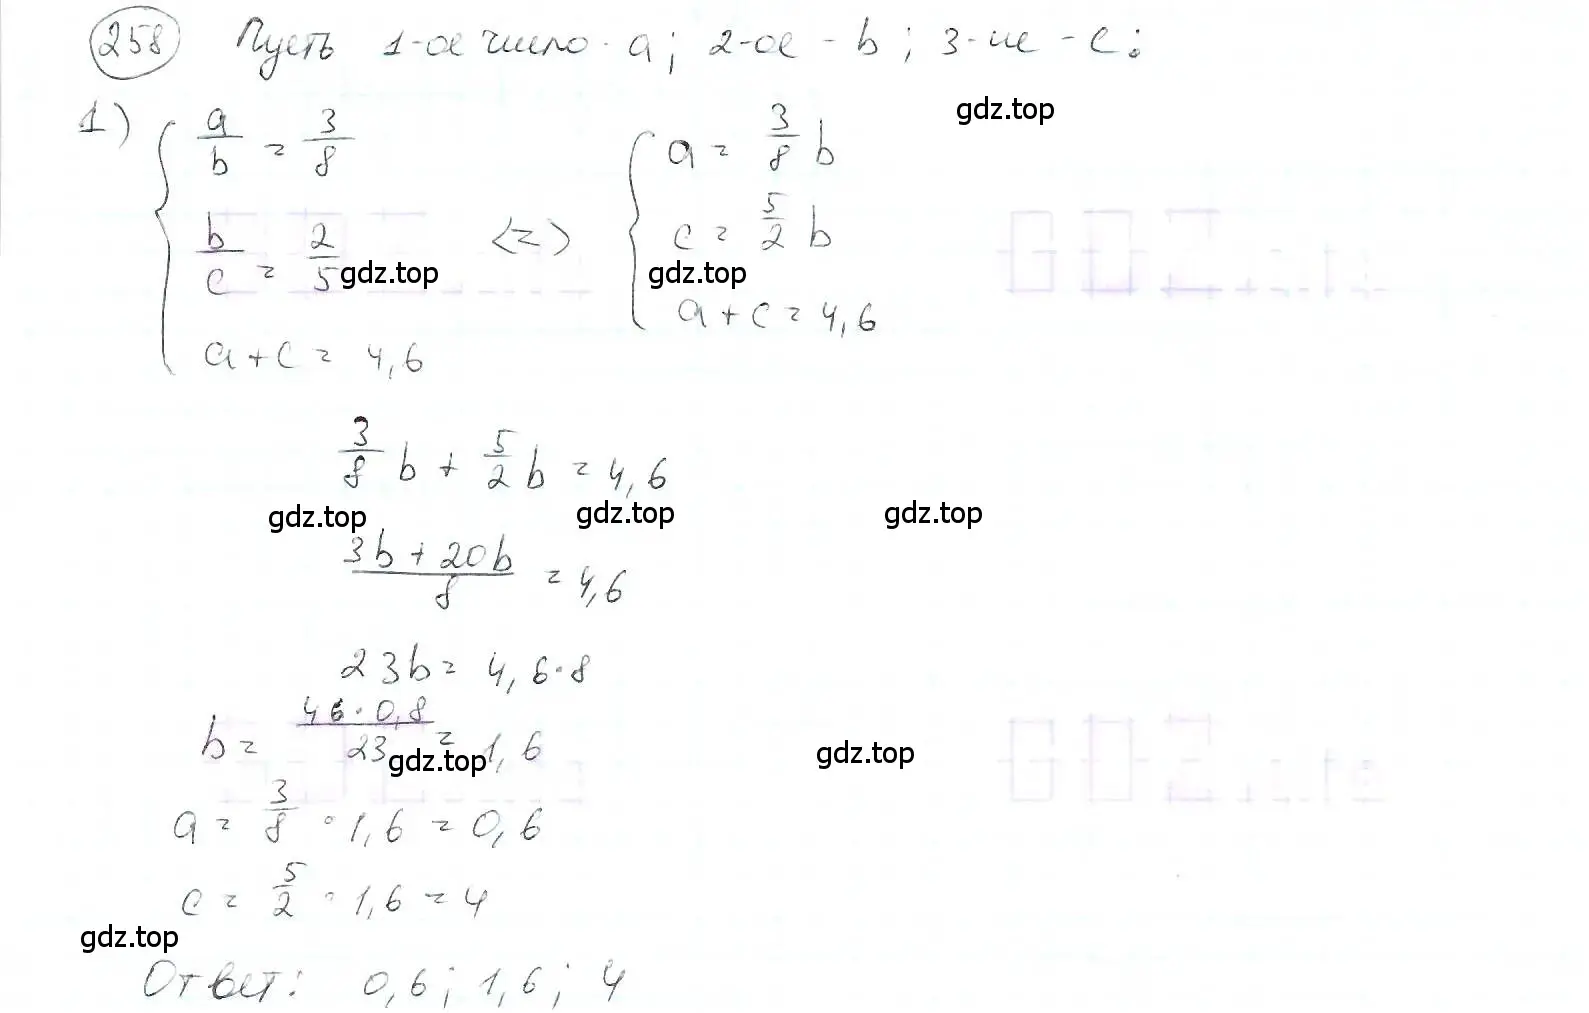 258 Пусть 1-ое число - a; 2-ое - b; 3-ие - c:
gdz.top
1) { a/b = 3/8 { a = 3/8 b
b/c = 2/5 <=> c = 5/2 b
gdz.top gdz.top
a + c = 4,6 a + c = 4,6
3/8 b + 5/2 b = 4,6
gdz.top gdz.top gdz.top
(3b + 20b)/8 = 4,6
23b = 4,6 · 8
b = (46 · 0,8)/23 = 1,6
gdz.top gdz.top
a = 3/8 · 1,6 = 0,6
c = 5/2 · 1,6 = 4
gdz.top
Ответ: 0,6; 1,6; 4